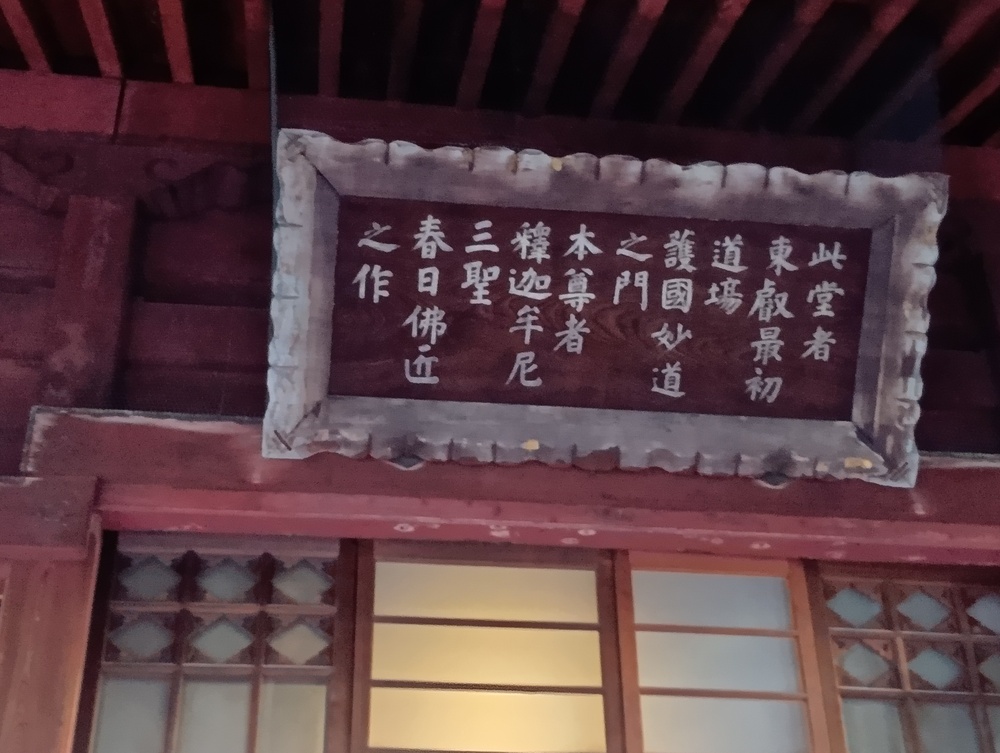 此堂者
東叡最初
道場
護國妙道
之門
本尊者
釋迦牟尼
三聖
春日佛匠
之作